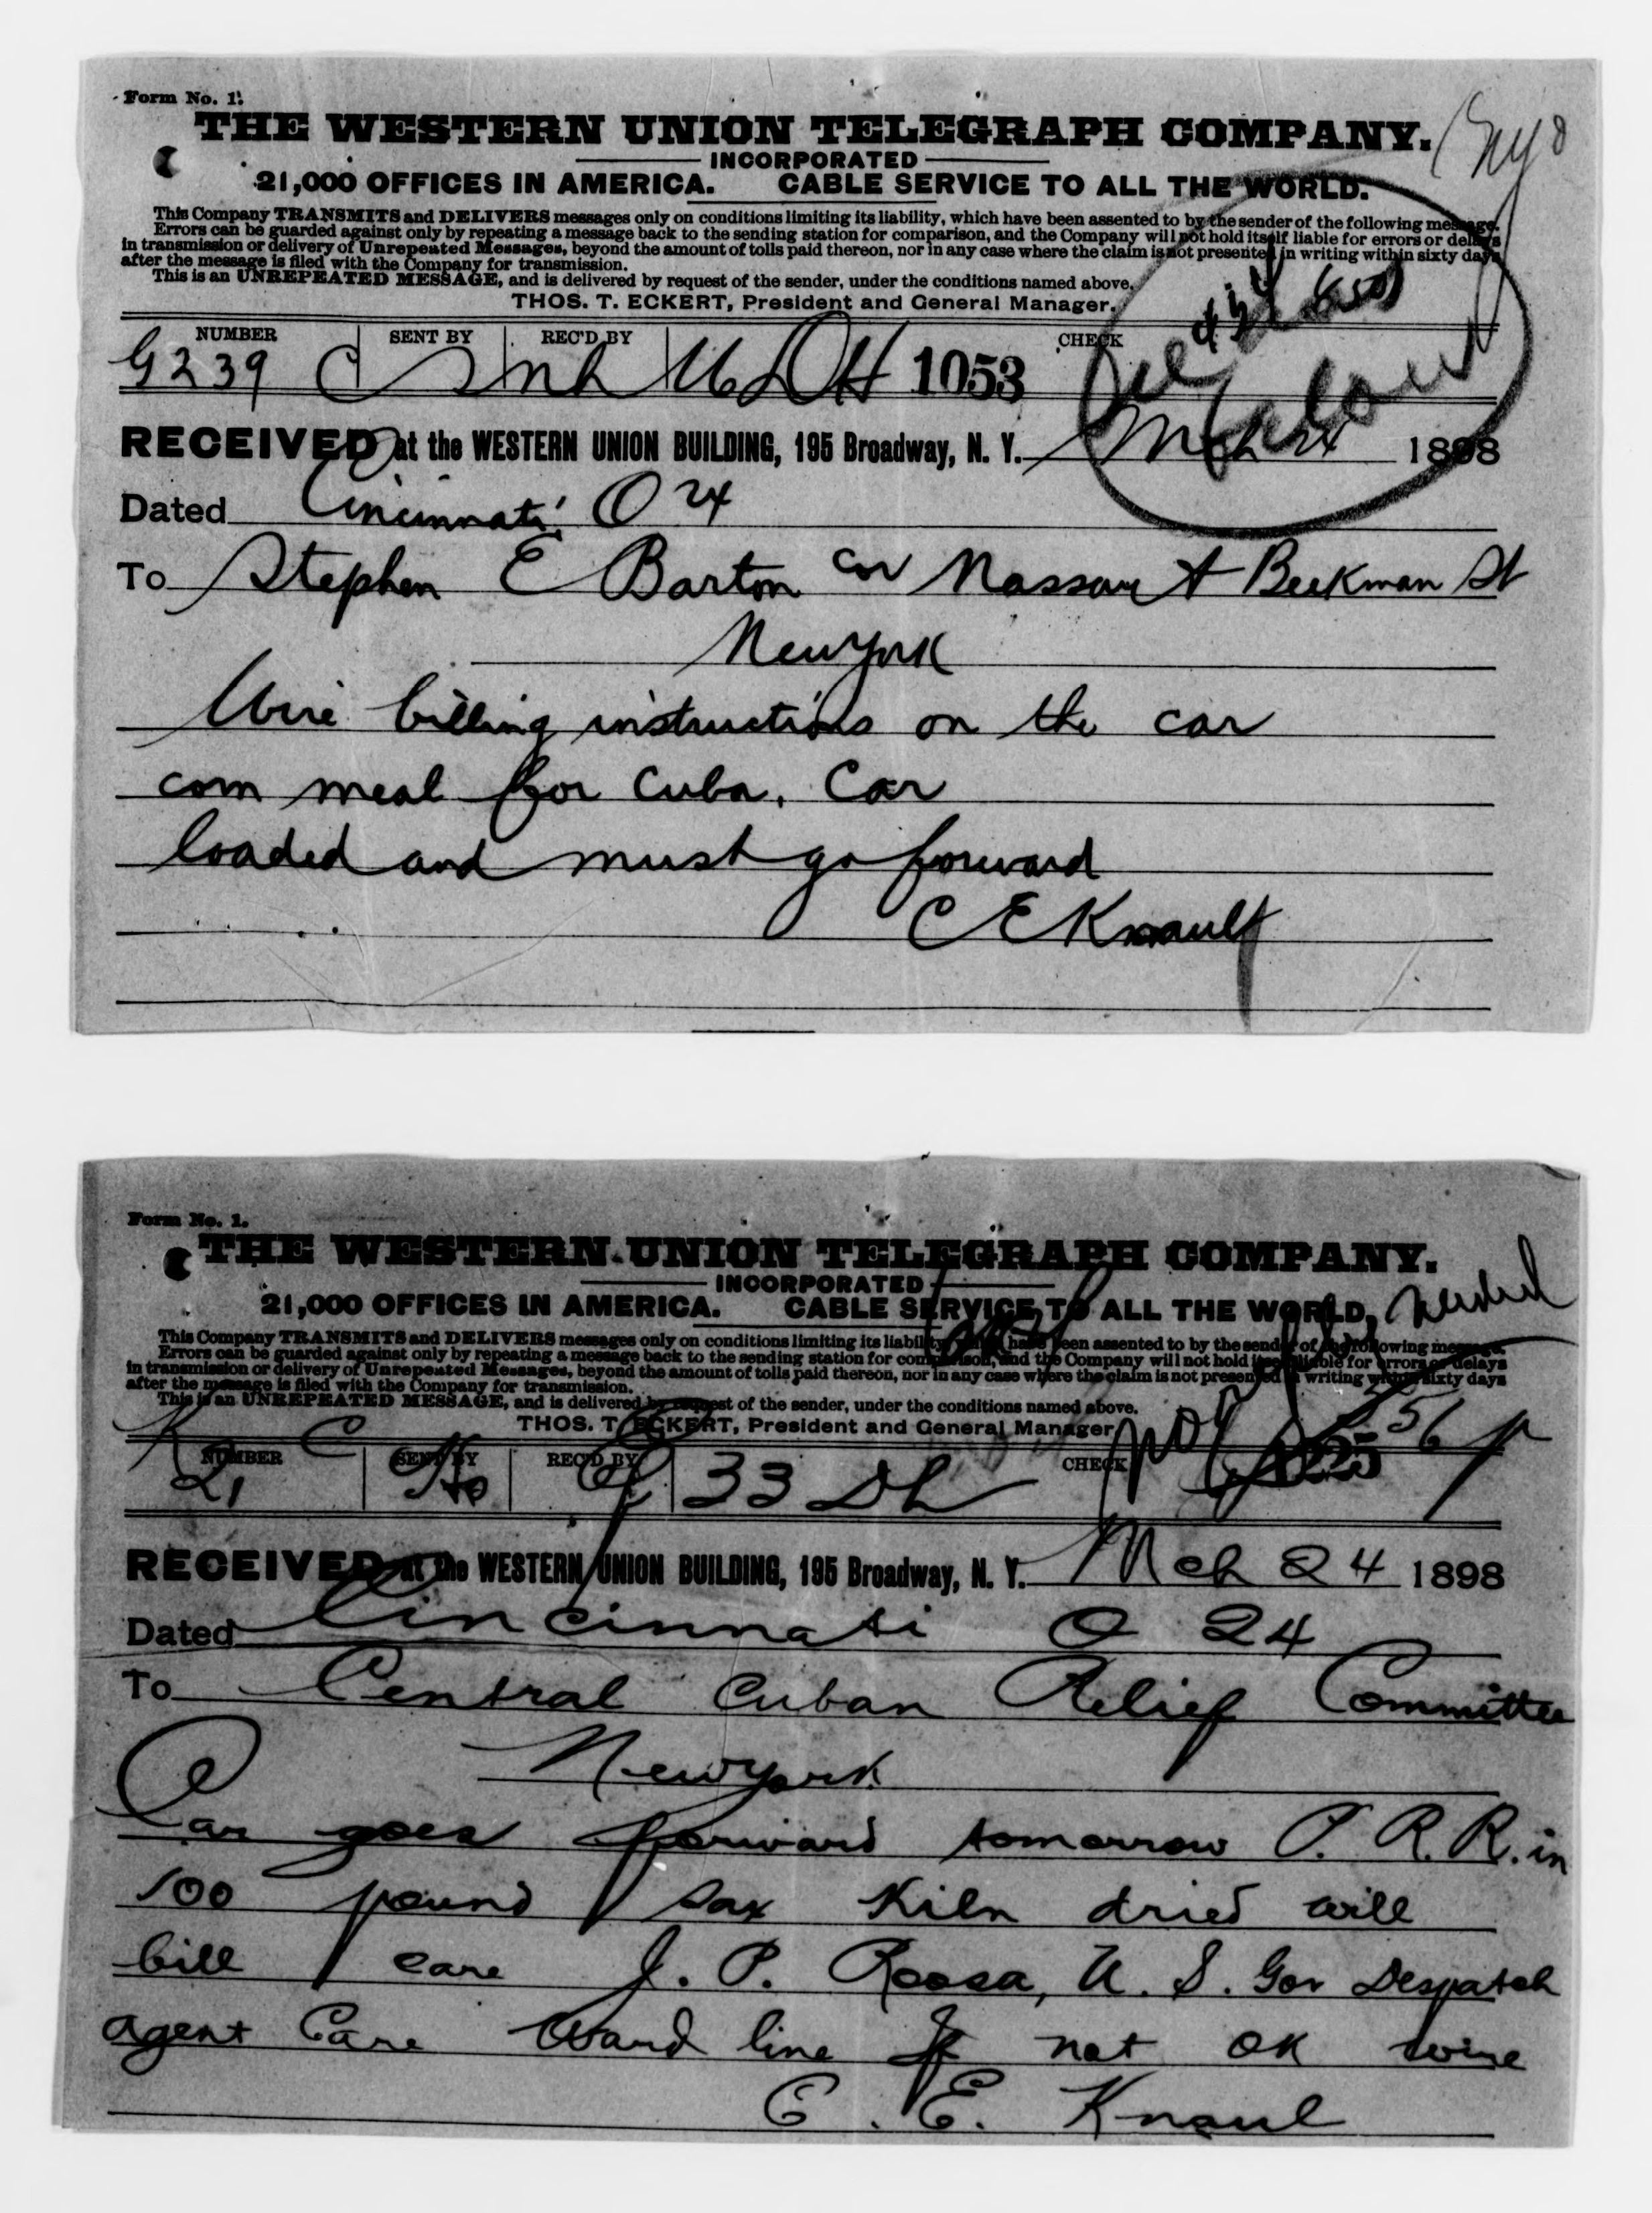 Form No. 1.
THE WESTERN UNION TELEGRAPH COMPANY.
INCORPORATED
21,000 OFFICES IN AMERICA. CABLE SERVICE TO ALL THE WORLD.
This Company TRANSMITS and DELIVERS messages only on conditions limiting its liability, which have been assented to by the sender of the following message.
Errors can be guarded against only by repeating a message back to the sending station for comparison, and the Company will not hold itself liable for errors or delays
in transmission or delivery of Unrepeated Messages, beyond the amount of tolls paid thereon, nor in any case where the claim is not presented in writing within sixty days
after the message is filed with the Company for transmission.
This is an UNREPEATED MESSAGE, and is delivered by request of the sender, under the conditions named above.
THOS. T. ECKERT, President and General Manager.
NUMBER SENT BY REC'D BY CHECK
G239 1053
RECEIVED at the WESTERN UNION BUILDING, 195 Broadway, N. Y. Mch 24 1898
Dated Cincinnati O 24
To Stephen E Barton Cor Nassau & Beekman St
New York
Wire billing instructions on the car
corn meal for Cuba. Car
loaded and must go forward
C E Knault
Form No. 1.
THE WESTERN UNION TELEGRAPH COMPANY.
INCORPORATED
21,000 OFFICES IN AMERICA. CABLE SERVICE TO ALL THE WORLD.
This Company TRANSMITS and DELIVERS messages only on conditions limiting its liability, which have been assented to by the sender of the following message.
Errors can be guarded against only by repeating a message back to the sending station for comparison, and the Company will not hold itself liable for errors or delays
in transmission or delivery of Unrepeated Messages, beyond the amount of tolls paid thereon, nor in any case where the claim is not presented in writing within sixty days
after the message is filed with the Company for transmission.
This is an UNREPEATED MESSAGE, and is delivered by request of the sender, under the conditions named above.
THOS. T. ECKERT, President and General Manager.
NUMBER SENT BY REC'D BY CHECK
21 Ho 33 Dh
RECEIVED at the WESTERN UNION BUILDING, 195 Broadway, N. Y. Mch 24 1898
Dated Cincinnati O 24
To Central Cuban Relief Committee
New york
Car goes forward tomorrow P. R. R. in
100 pound sax Kiln dried will
bill care J. P. Roosa, U. S. Gov Despatch
agent Care Ward line If not OK wire
C. E. Knaul